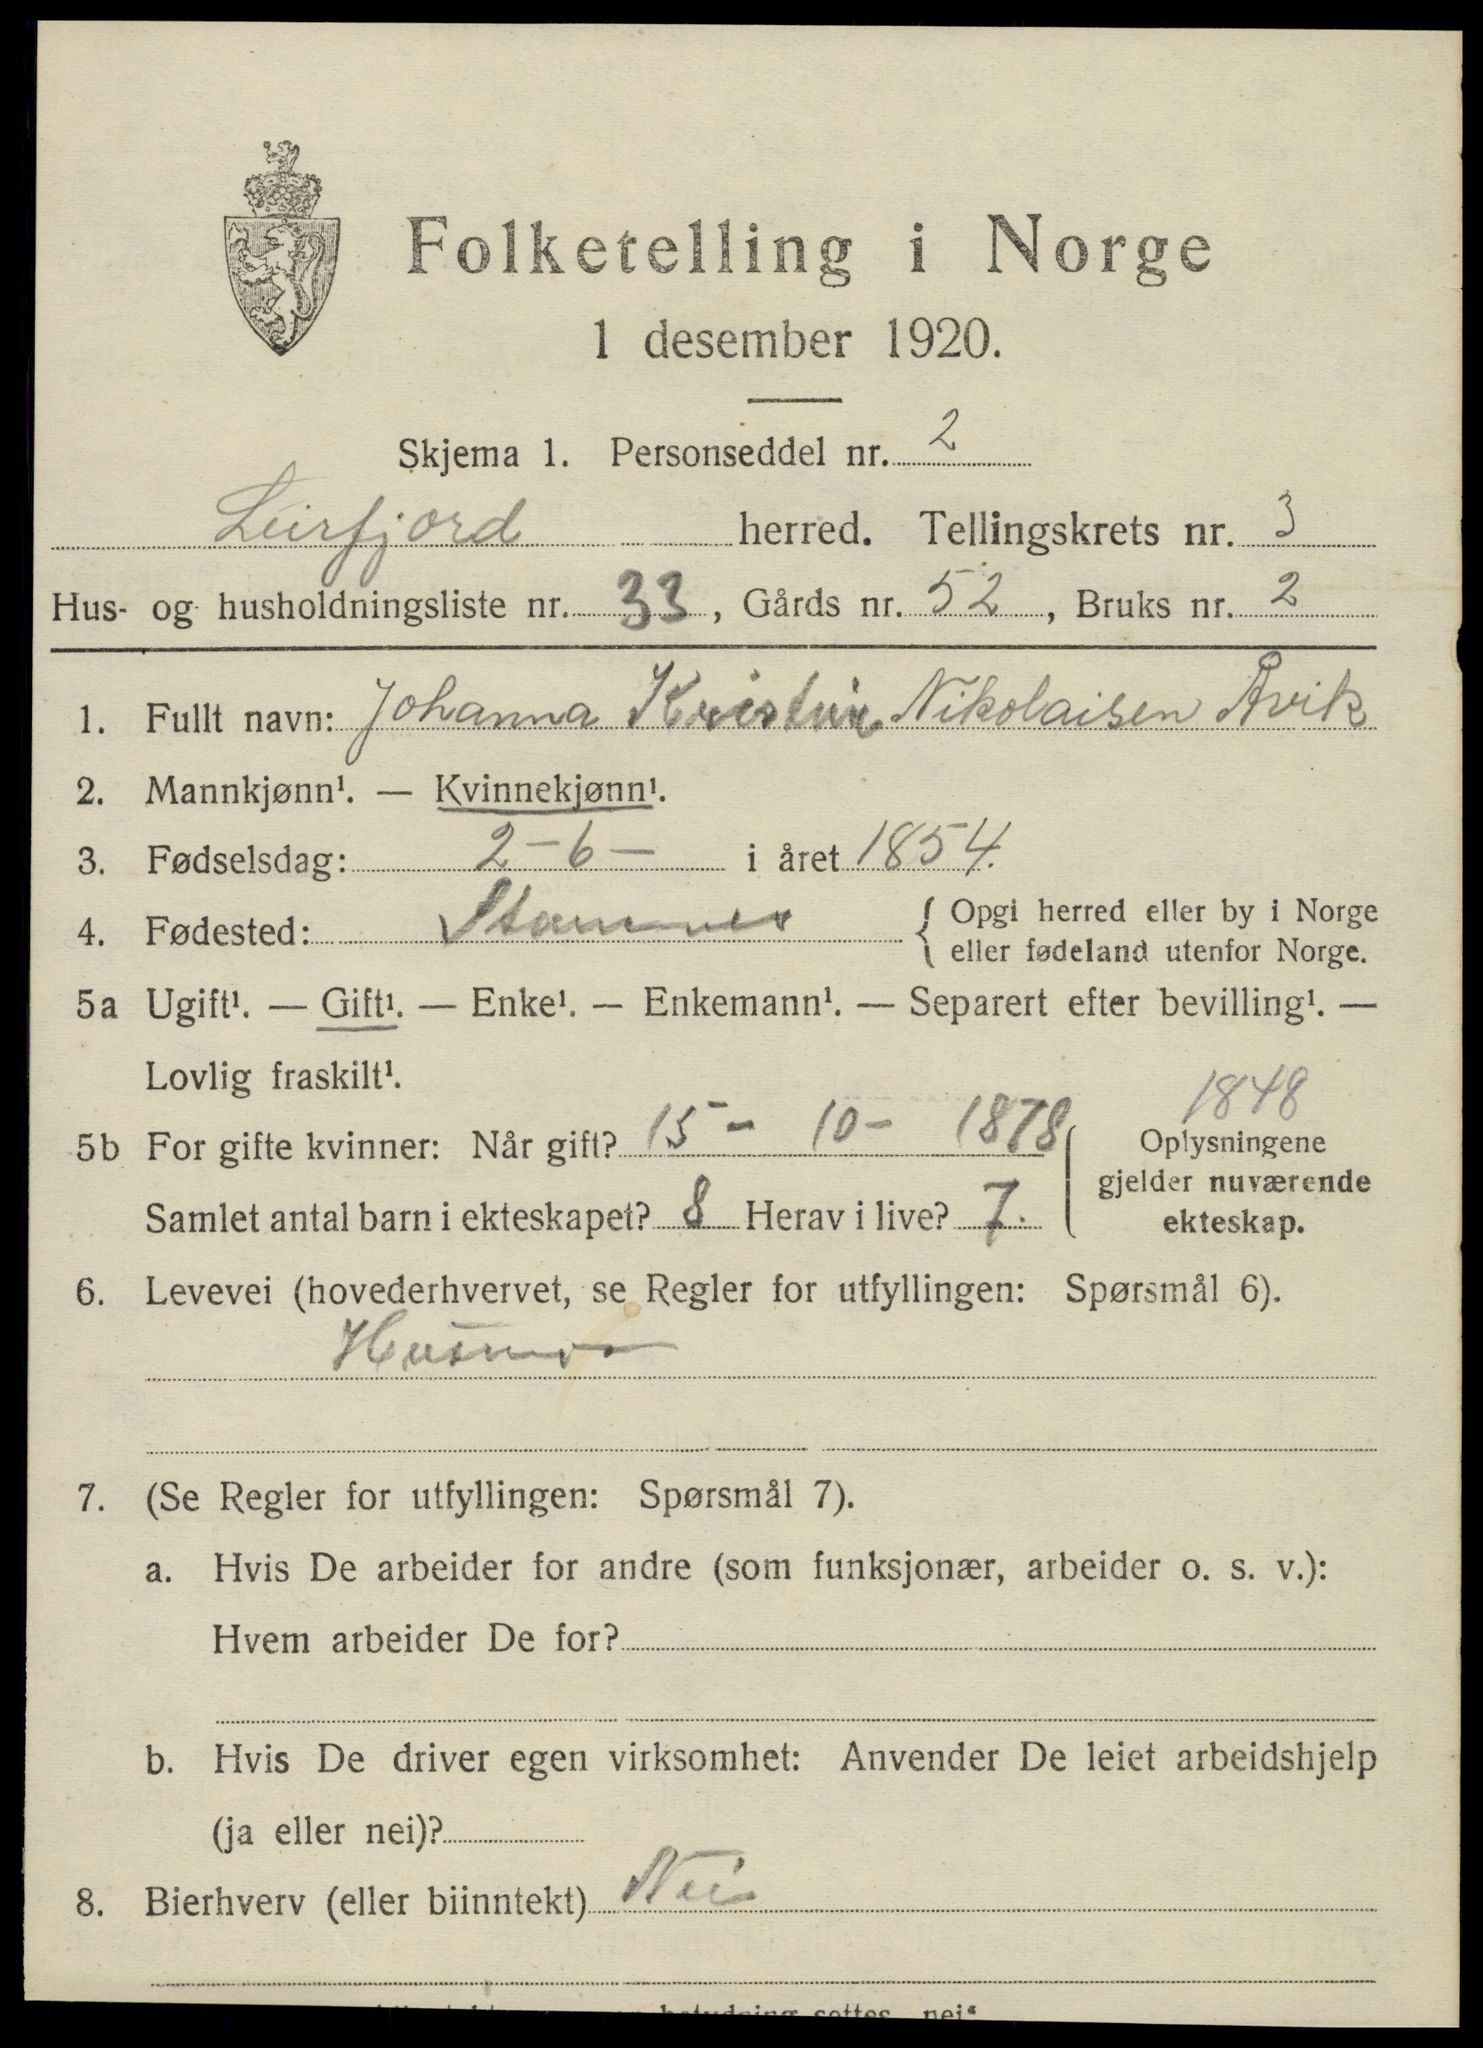 Folketelling i Norge
1 desember 1920.
Skjema 1. Personseddel nr. 2
Leirfjord herred. Tellingskrets nr. 3
Hus- og husholdningsliste nr. 33, Gårds nr. 52, Bruks nr. 2
1. Fullt navn: Johanna Kristine Nikolaisen Åvik
2. Mannkjønn¹. — Kvinnekjønn¹.
3. Fødselsdag: 2-6- i året 1854.
4. Fødested: Stamnes { Opgi herred eller by i Norge
eller fødeland utenfor Norge.
5a Ugift¹. — Gift¹. — Enke¹. — Enkemann¹. — Separert efter bevilling¹. —
Lovlig fraskilt¹.
1848
5b For gifte kvinner: Når gift? 15- 10- 1878 Oplysningene
gjelder nuværende
Samlet antal barn i ekteskapet? 8 Herav i live? 7. ekteskap.
6. Levevei (hovederhvervet, se Regler for utfyllingen: Spørsmål 6).
Husmor
7. (Se Regler for utfyllingen: Spørsmål 7).
a. Hvis De arbeider for andre (som funksjonær, arbeider o. s. v.):
Hvem arbeider De for?
b. Hvis De driver egen virksomhet: Anvender De leiet arbeidshjelp
(ja eller nei)?
8. Bierhverv (eller biinntekt) Nei